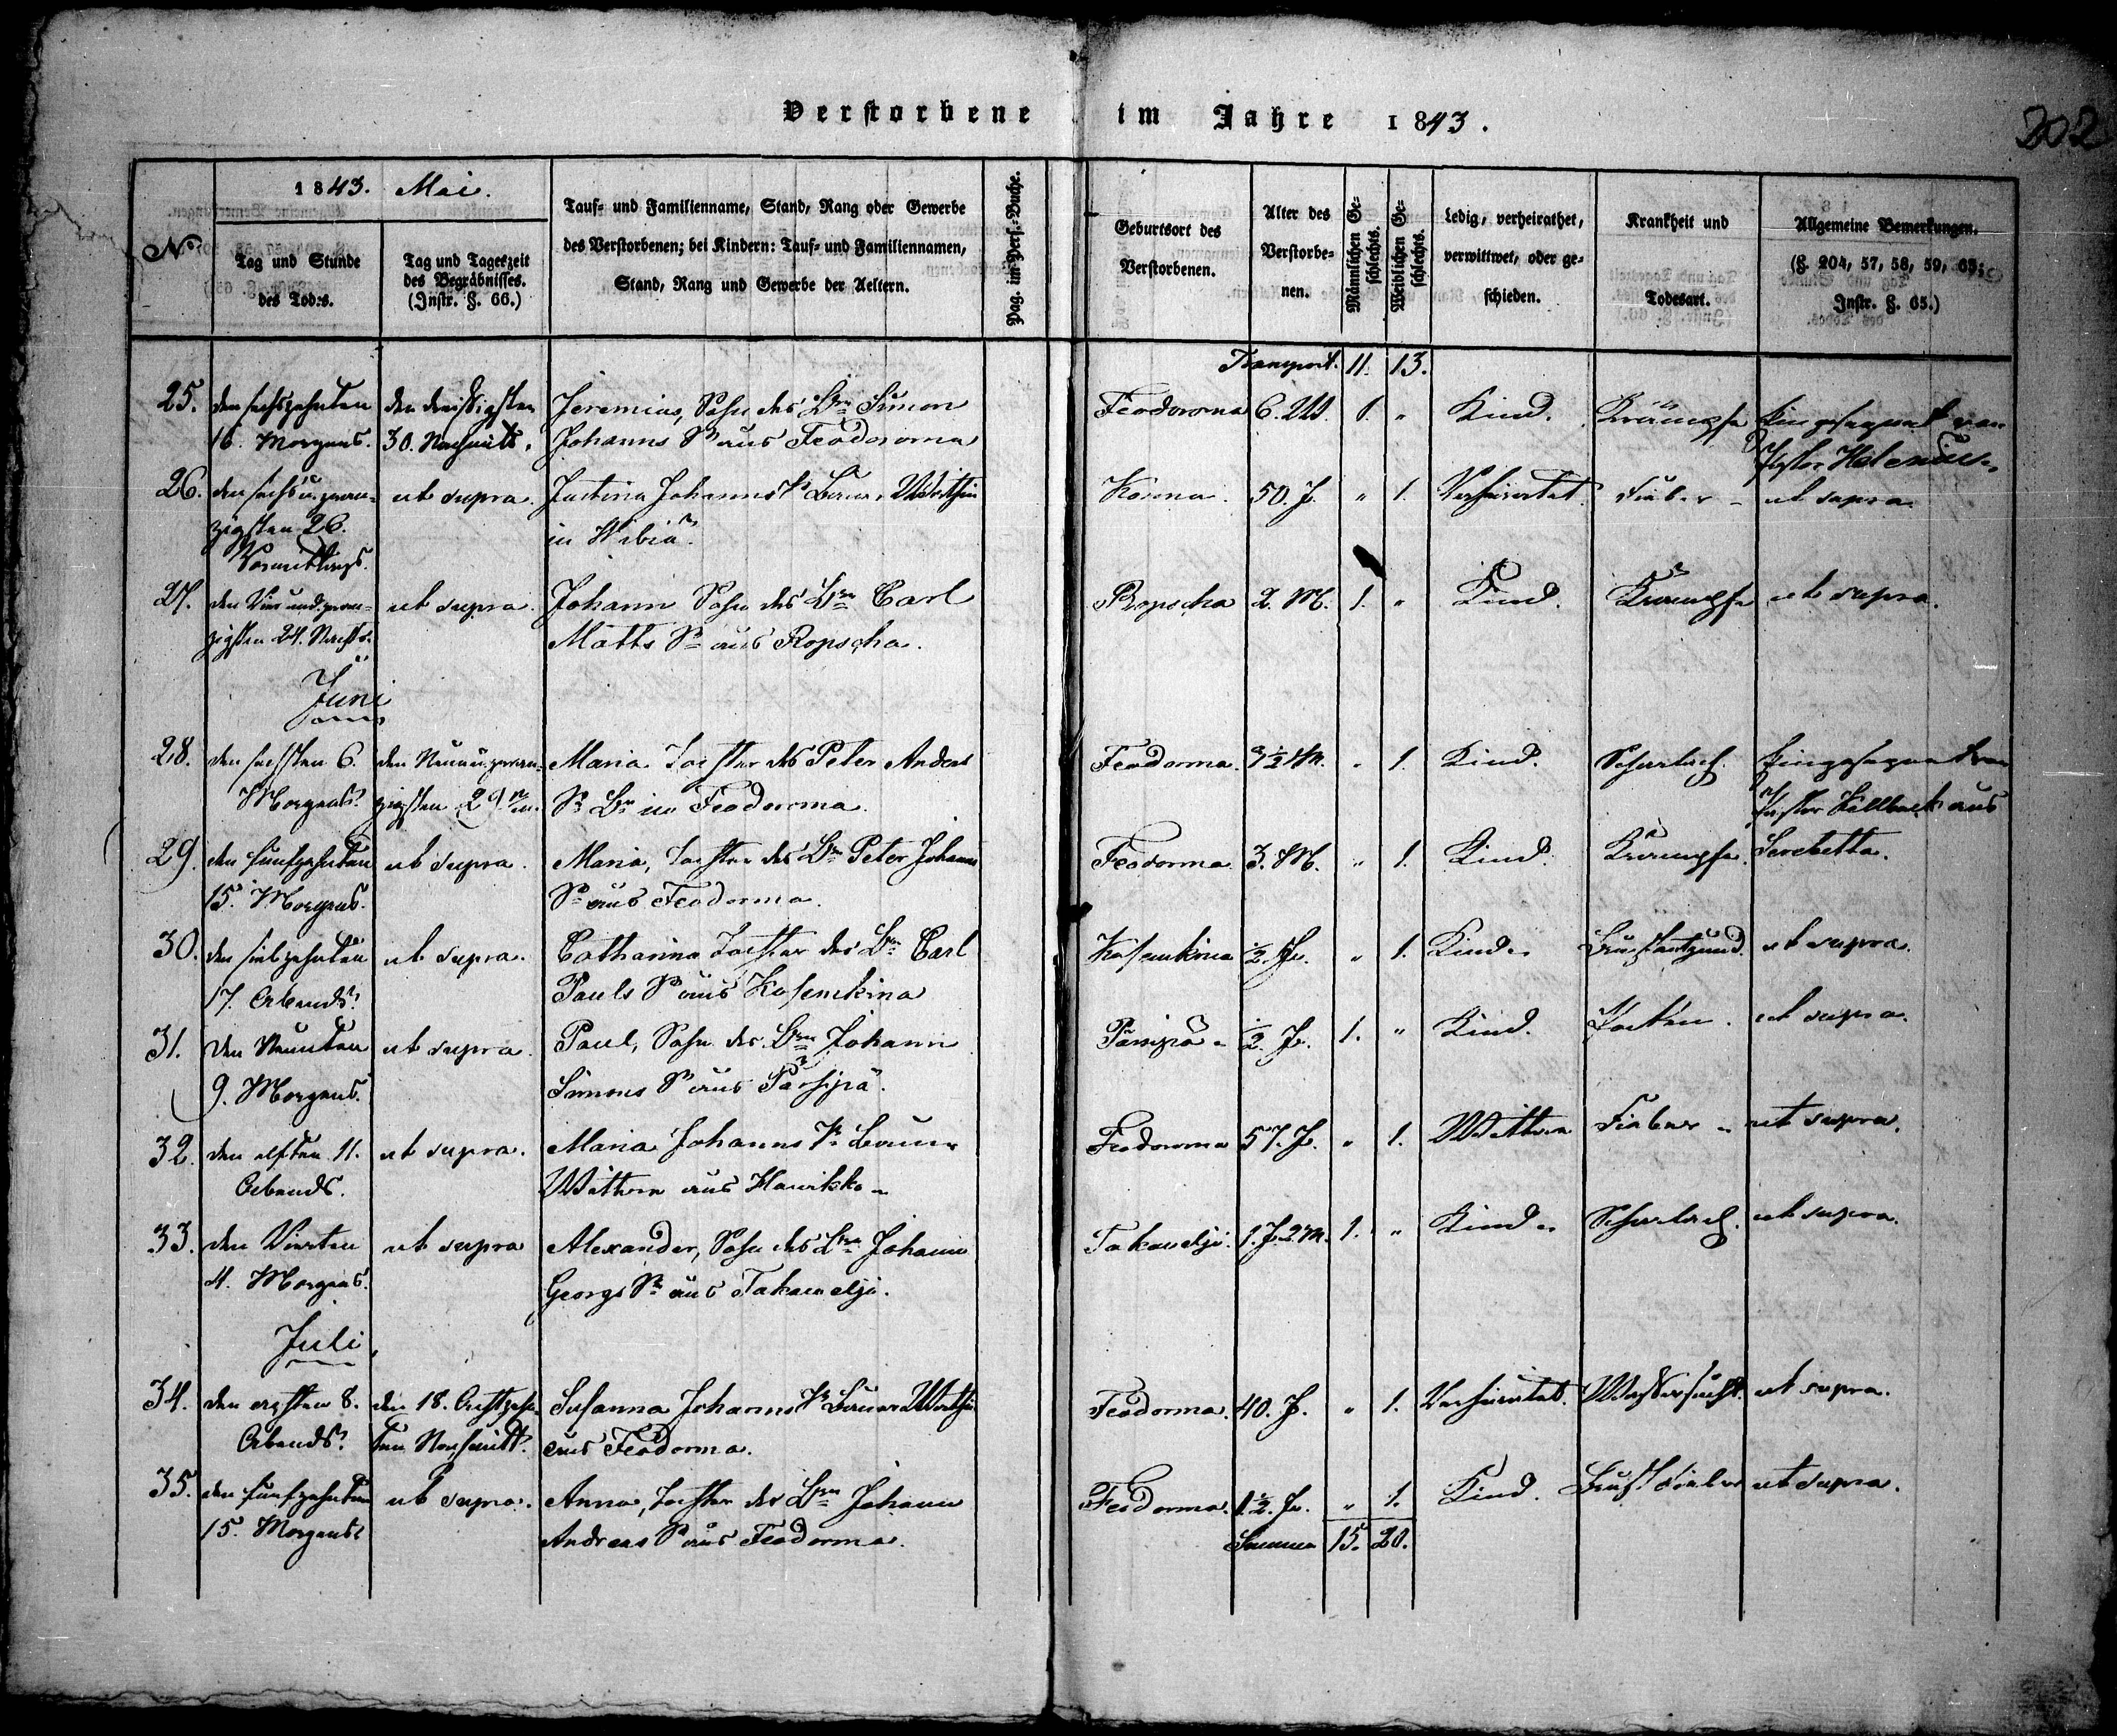 Verstorbene im Jahre 1843.
202
No
1843. Mai.
Tag und Stunde des Todes.
Tag und Tageszeit des Begräbnisses. (Instr. §. 66.)
Tauf- und Familienname, Stand, Rang oder Gewerbe
des Verstorbenen; bei Kindern: Tauf- und Familiennamen,
Stand, Rang und Gewerbe der Aeltern.
Pag. im Pers.-Buche.
Geburtsort des Verstorbenen.
Alter des Verstorbenen.
Männlichen Geschlechts.
Weiblichen Geschlechts.
Ledig, verheirathet, verwittwet, oder geschieden.
Krankheit und Todesart.
Allgemeine Bemerkungen.
(§. 204, 57, 58, 59, 63; Instr. §. 65.)
Transport. 11. 13.
25. den sechszehnten den dreißigsten Jeremias, Sohn des Brn Simon Feodorma 6. W. 1. " Kind. Krämpfe Eingesegnet von
16. Morgens. 30. Nachmitt. Johanns S. aus Feodorma Pastor
26. den sechs u. zwan- ut supra. Justina Johanns T. Bauer Wirthin 50. J. " 1. Verheiratet. Fieber ut supra
zigsten 26. in
Vormittags.
27. den Vier und zwan- ut supra. Johann Sohn des Brn Carl Ropscha 2. M. 1. " Kind. Krämpfe ut supra.
zigsten 24. Nachts. Matts S. aus Ropscha.
Juni
28. den sechsten 6. den Neun u. zwan- Maria Tochter des Peter Andreas Feodorma. 3½ M. " 1. Kind. Scharlach. Eingesegnet von
Morgens. zigsten 29 S. Br in Feodorma. Pastor aus
29. den fünfzehnten ut supra. Maria, Tochter des Brn Peter Johann Feodorma 3. M. " 1. Kind. Krämpfe.
15. Morgens. S. aus Feodorma.
30. den siebzehnten ut supra. Catharina Tochter des Br Carl Kosemkina ½ J. " 1. Kind. Brustentzünd. ut supra.
17. Abends. Pauls S. aus Kosemkina
31. Den Neunten ut supra. Paul, Sohn des Brn Johann ½ J. 1. " Kind. Pocken. ut supra.
9. Morgens. Simons S. aus
32. den elften 11. ut supra. Maria Johanns T. Bauer Feodorma 57. J. " 1. Wittwe Fieber ut supra.
Abends. Wittwe aus
33. den Vierten ut supra Alexander, Sohn des Brn Johann 1. J. 2 M. 1. " Kind. Scharlach. ut supra.
4. Morgens. Georgs S. aus
Juli
34. den 8. den 18. Achtzehn- Susanna Johanns T. Bauer Wirthin Feodorma. 40. J. " 1. Verheiratet. Wassersucht. ut supra.
Abends. ten Nachmitt. aus Feodorma.
35. den fünfzehnten ut supra. Anna, Tochter des Brn Johann Feodorma. 1½ J. " 1. Kind. Brustfieber ut supra.
15. Morgens. Andreas S. aus Feodorma.
Summa 15. 20.